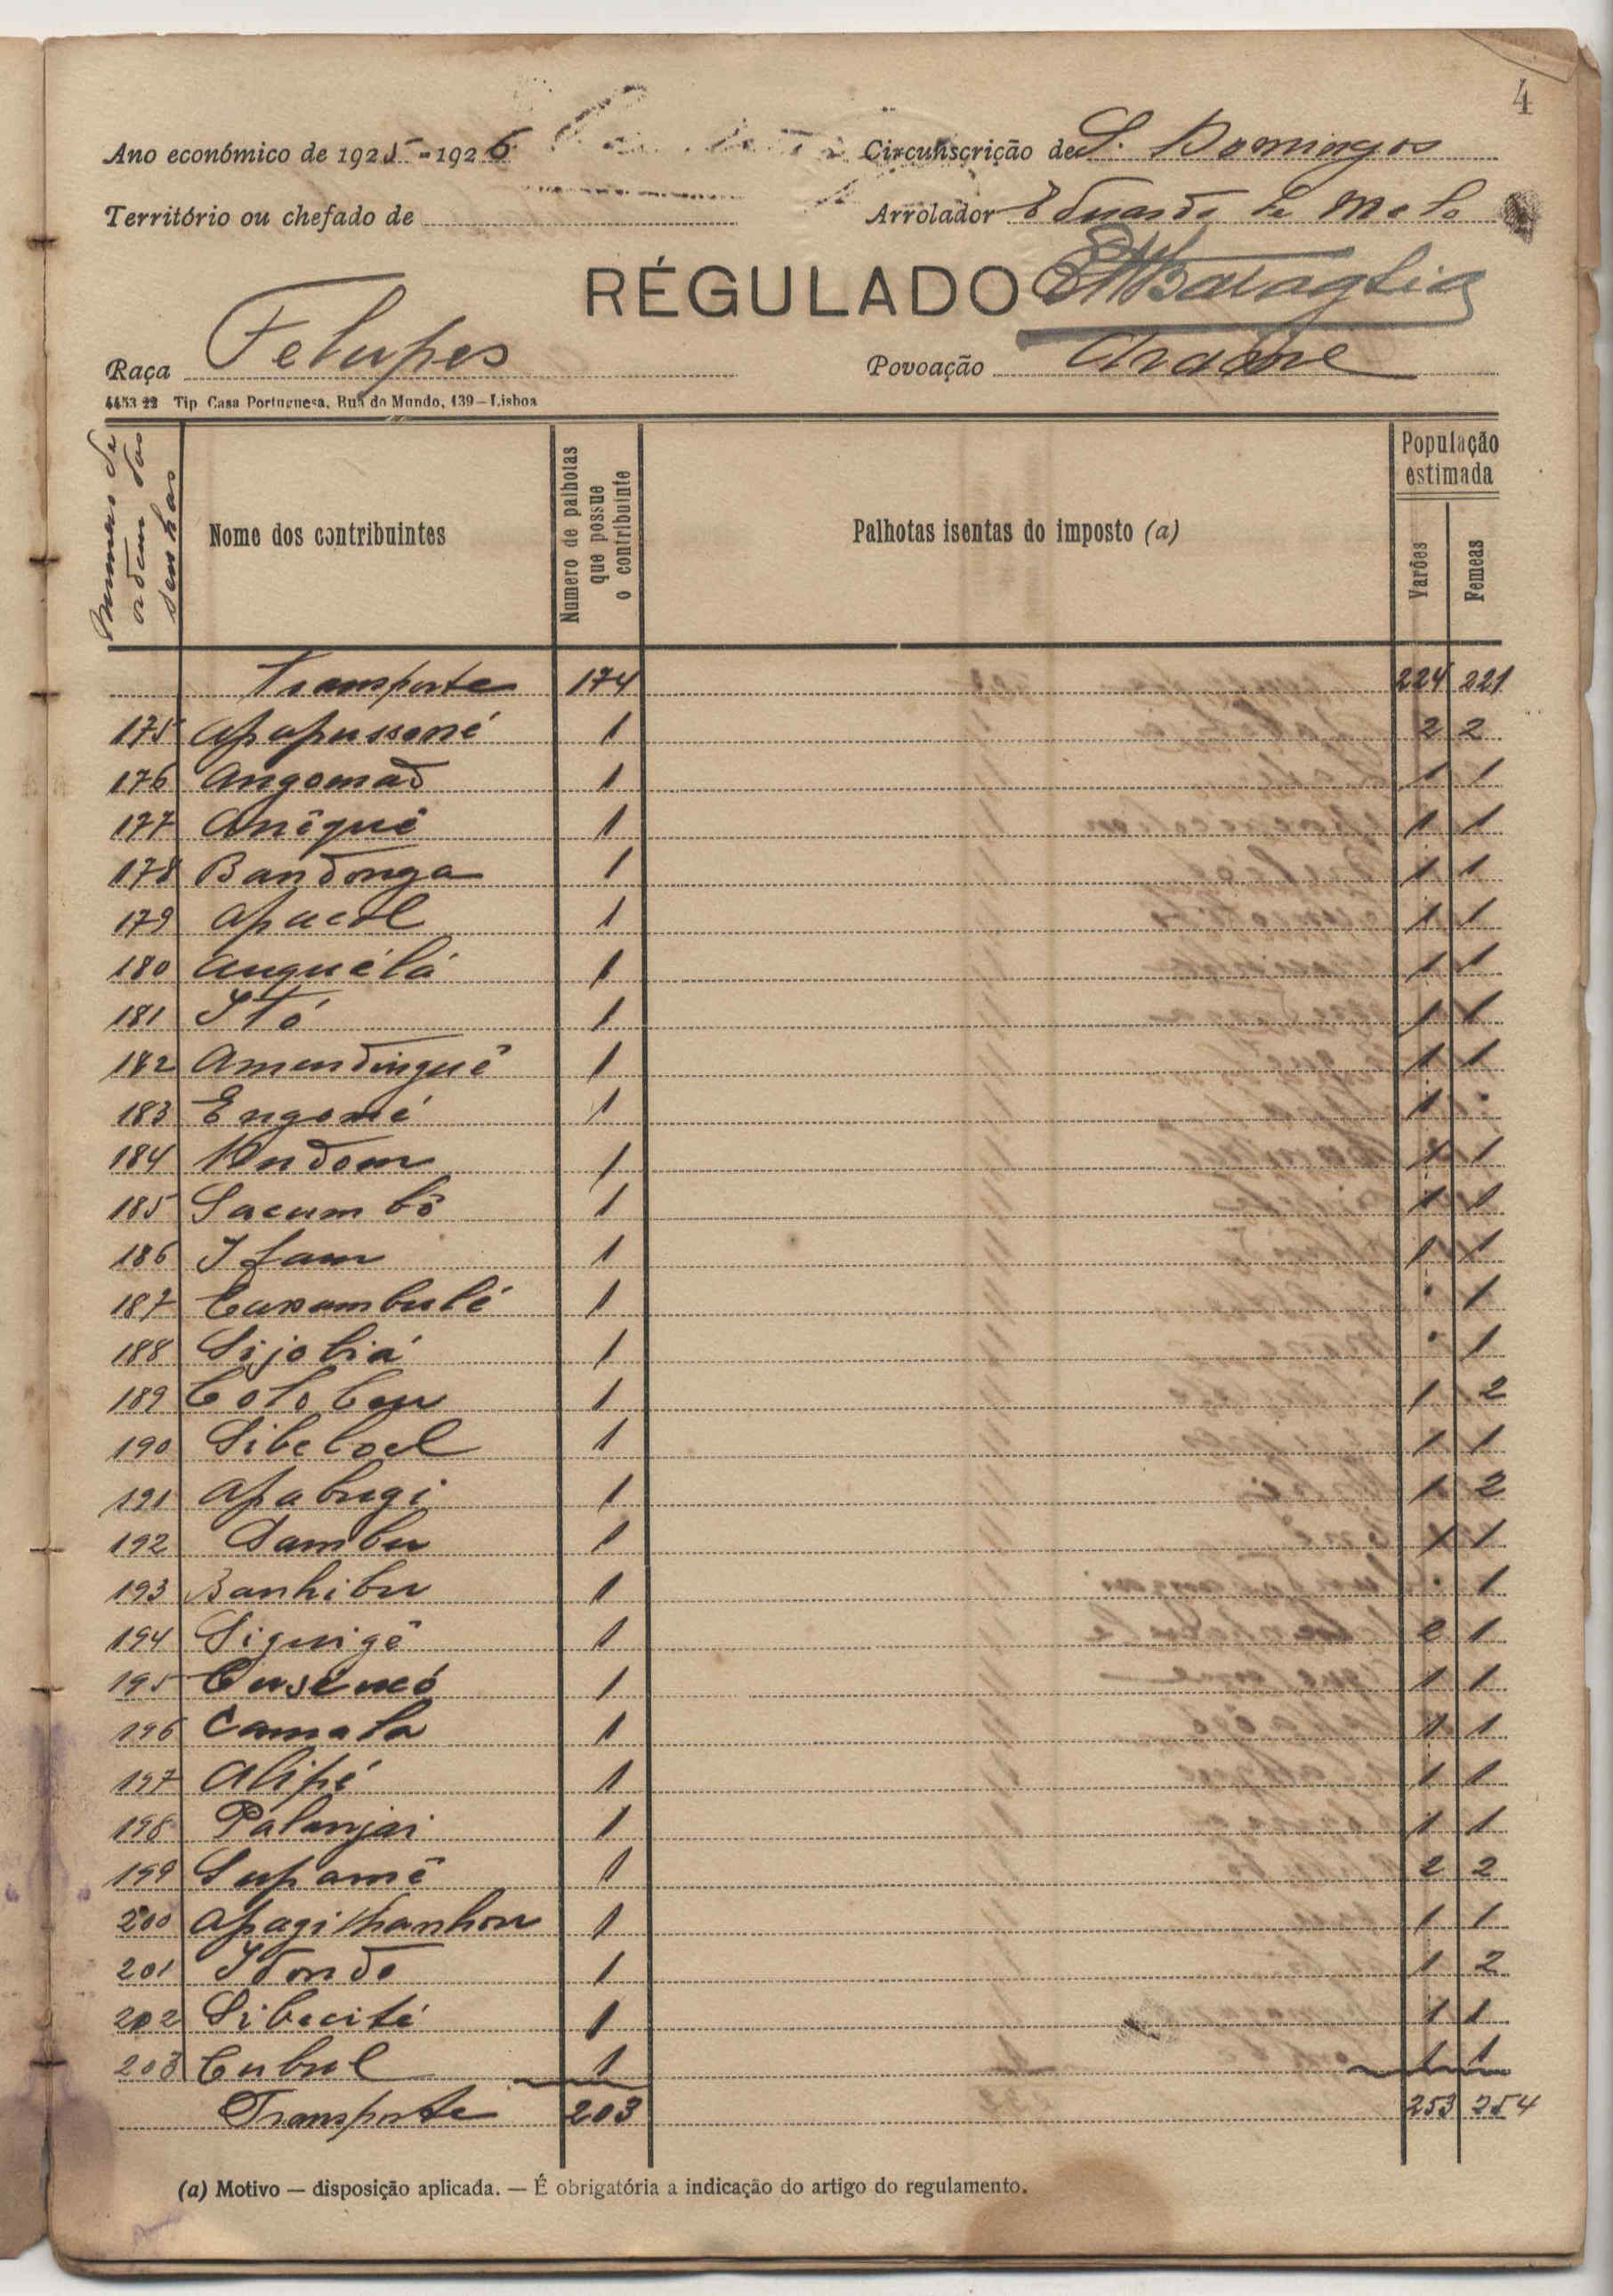 4
Ano económico de 1925-1926 Circunscrição de S. Domingos
Território ou chefado de Arrolador Eduardo de Melo
RÉGULADO
Raça Felupes Povoação Arame
4453 22 Tip Casa Portuguesa, Rua do Mundo, 139—Lisboa
Numero de ordem das senhas
Nome dos contribuintes
Numero de palhotas que possue o contribuinte
Palhotas isentas do imposto (a)
População estimada
Varões Femeas
Transporte 174 224 221
175 Apapussoné 1 2 2
176 Angomad 1 1 1
177 Anêquê 1 1 1
178 Bandonga 1 1 1
179 Apacol 1 1 1
180 Auguélá 1 1 1
181 Itó 1 1 1
182 Amendinguê 1 1 1
183 Engomé 1 1 "
184 Undom 1 1 1
185 Sacumbô 1 1 1
186 Ifam 1 1 1
187 Caxambulé 1 " 1
188 Sijobiá 1 " 1
189 Colobeu 1 1 2
190 Sibeloel 1 1 1
191 Apabugi 1 1 2
192 Sambu 1 1 1
193 Banhibu 1 " 1
194 Siguigê 1 2 1
195 1 1 1
196 Camala 1 1 1
197 Alipé 1 1 1
198 Palunjai 1 1 1
199 Supamê 1 2 2
200 Apagithanhou 1 1 1
201 Itondo 1 1 2
202 Sibecité 1 1 1
203 Cubul 1 1 1
Transporte 203 253 254
(a) Motivo — disposição aplicada. — É obrigatória a indicação do artigo do regulamento.